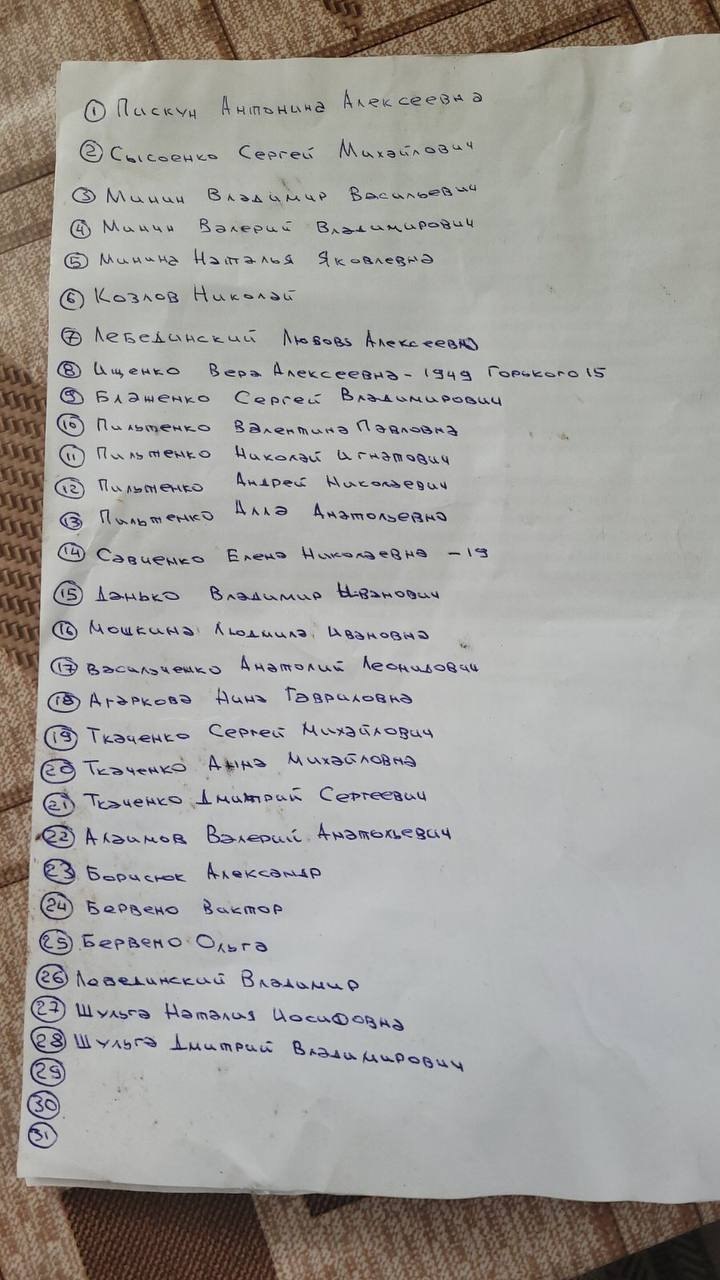 1 Пискун Антонина Алексеевна
2 Сысоенко Сергей Михайлович
3 Минин Владимир Васильевич
4 Минин Валерий Владимирович
5 Минина Наталья Яковлевна
6 Козлов Николай
7 Лебединский Любовь Алексеевна
8 Ищенко Вера Алексеевна - 1949 Горького 15
9 Блаженко Сергей Владимирович
10 Пильтенко Валентина Павловна
11 Пильтенко Николай Игнатович
12 Пильтенко Андрей Николаевич
13 Пильтенко Алла Анатольевна
14 Савченко Елена Николаевна - 19
15 Данько Владимир Иванович
16 Мошкина Людмила Ивановна
17 Васильченко Анатолий Леонидович
18 Агаркова Нина Гавриловна
19 Ткаченко Сергей Михайлович
20 Ткаченко Анна Михайловна
21 Ткаченко Дмитрий Сергеевич
22 Алаимов Валерий Анатольевич
23 Борисюк Александр
24 Бервено Виктор
25 Бервено Ольга
26 Лебединский Владимир
27 Шульга Наталия Иосифовна
28 Шульга Дмитрий Владимирович
29
30
31